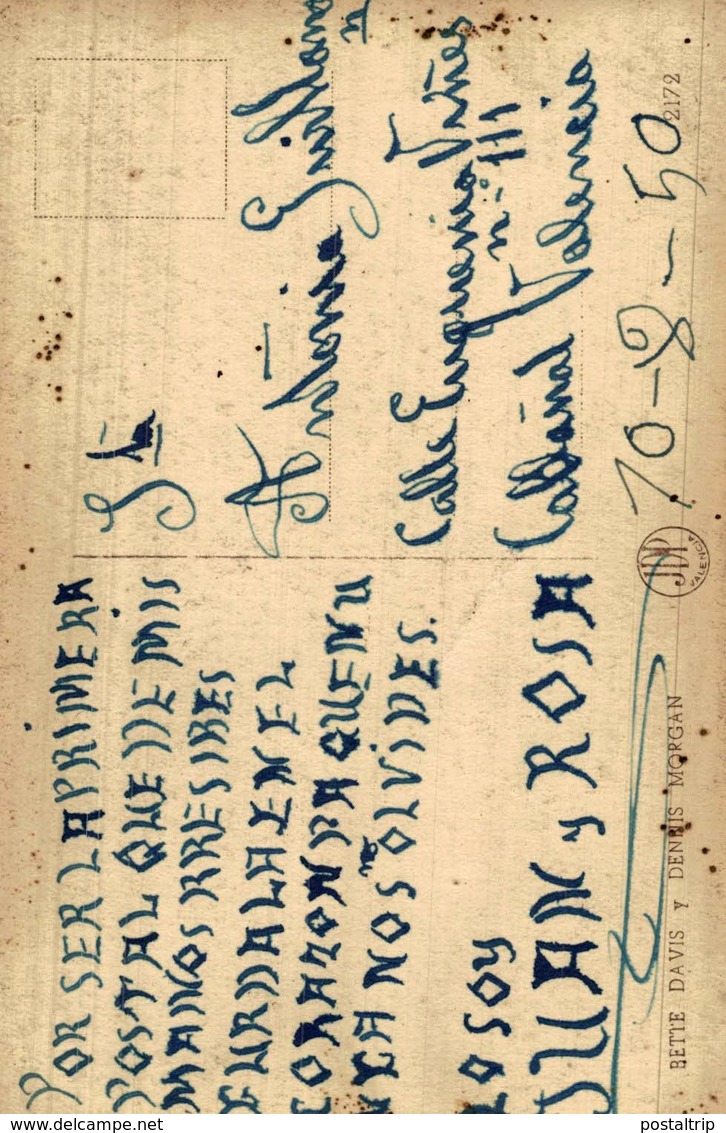 POR SER LA PRIMERA
POSTAL QUE DE MIS
MANOS RRESIBES
GURDALA EN EL
CORAZON PA QUE NU
NCA NOS OLVIDES.
LO SOY
JUAN, y ROSA
Antonia
Calle Eugenia Viñes
n.º 111
Cabañal Valencia
10-8-50
JDP
VALENCIA
BETTE DAVIS Y DENNIS MORGAN
2172
www.delcampe.net
postaltrip